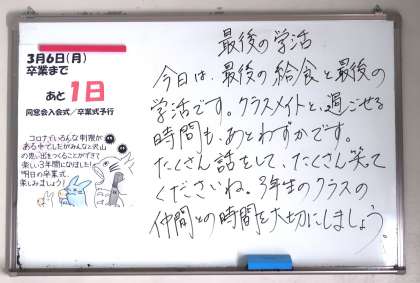 3月6日(月)
卒業まで
あと1日
同窓会入会式/卒業式予行
コロナでいろんな制限が
ある中でしたがみんなと沢山
の思い出をつくることができて
楽しい3年間になりました
明日の卒業式、
楽しみましょう!
最後の学活
今日は、最後の給食と最後の
学活です。クラスメイトと、過ごせる
時間も、あとわずかです。
たくさん話をして、たくさん笑て
くださいね。3年生のクラスの
仲間との時間を大切にしましょう。